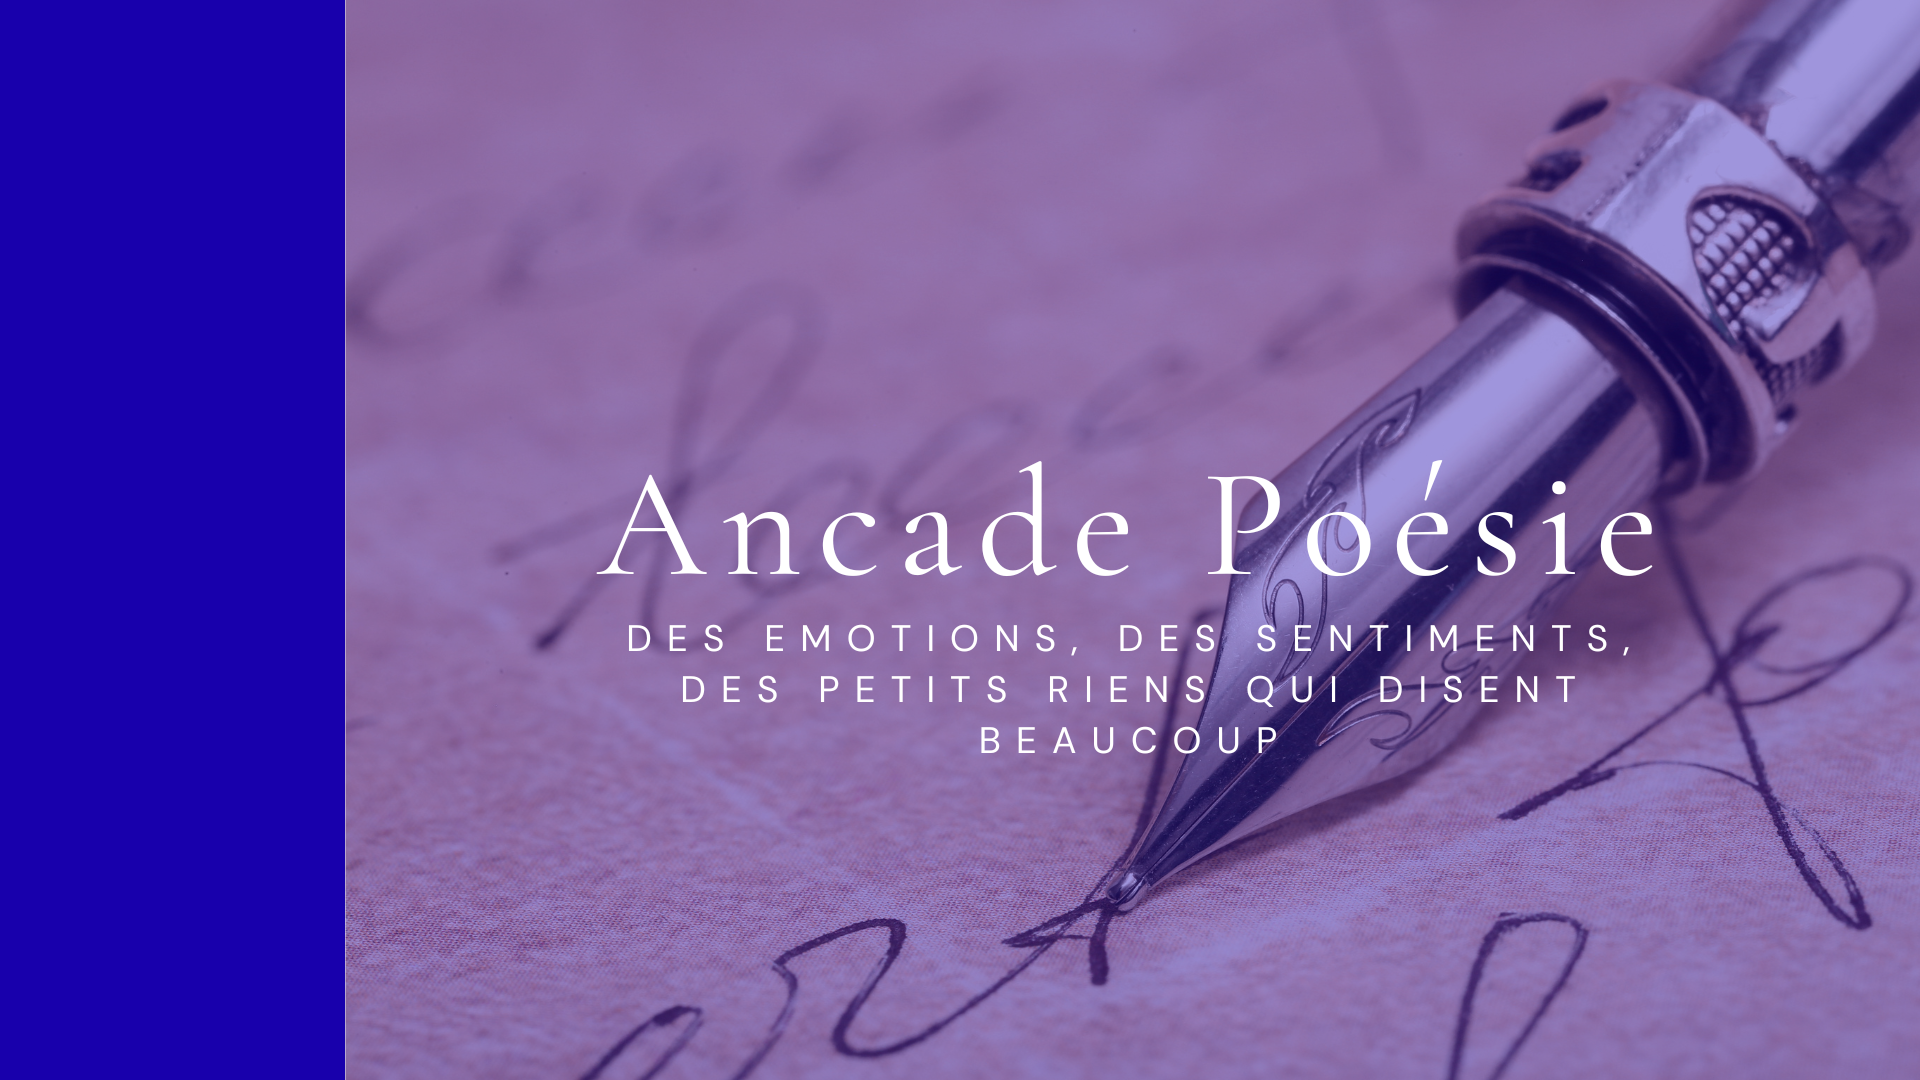 Ancade Poésie
DES EMOTIONS, DES SENTIMENTS,
DES PETITS RIENS QUI DISENT
BEAUCOUP